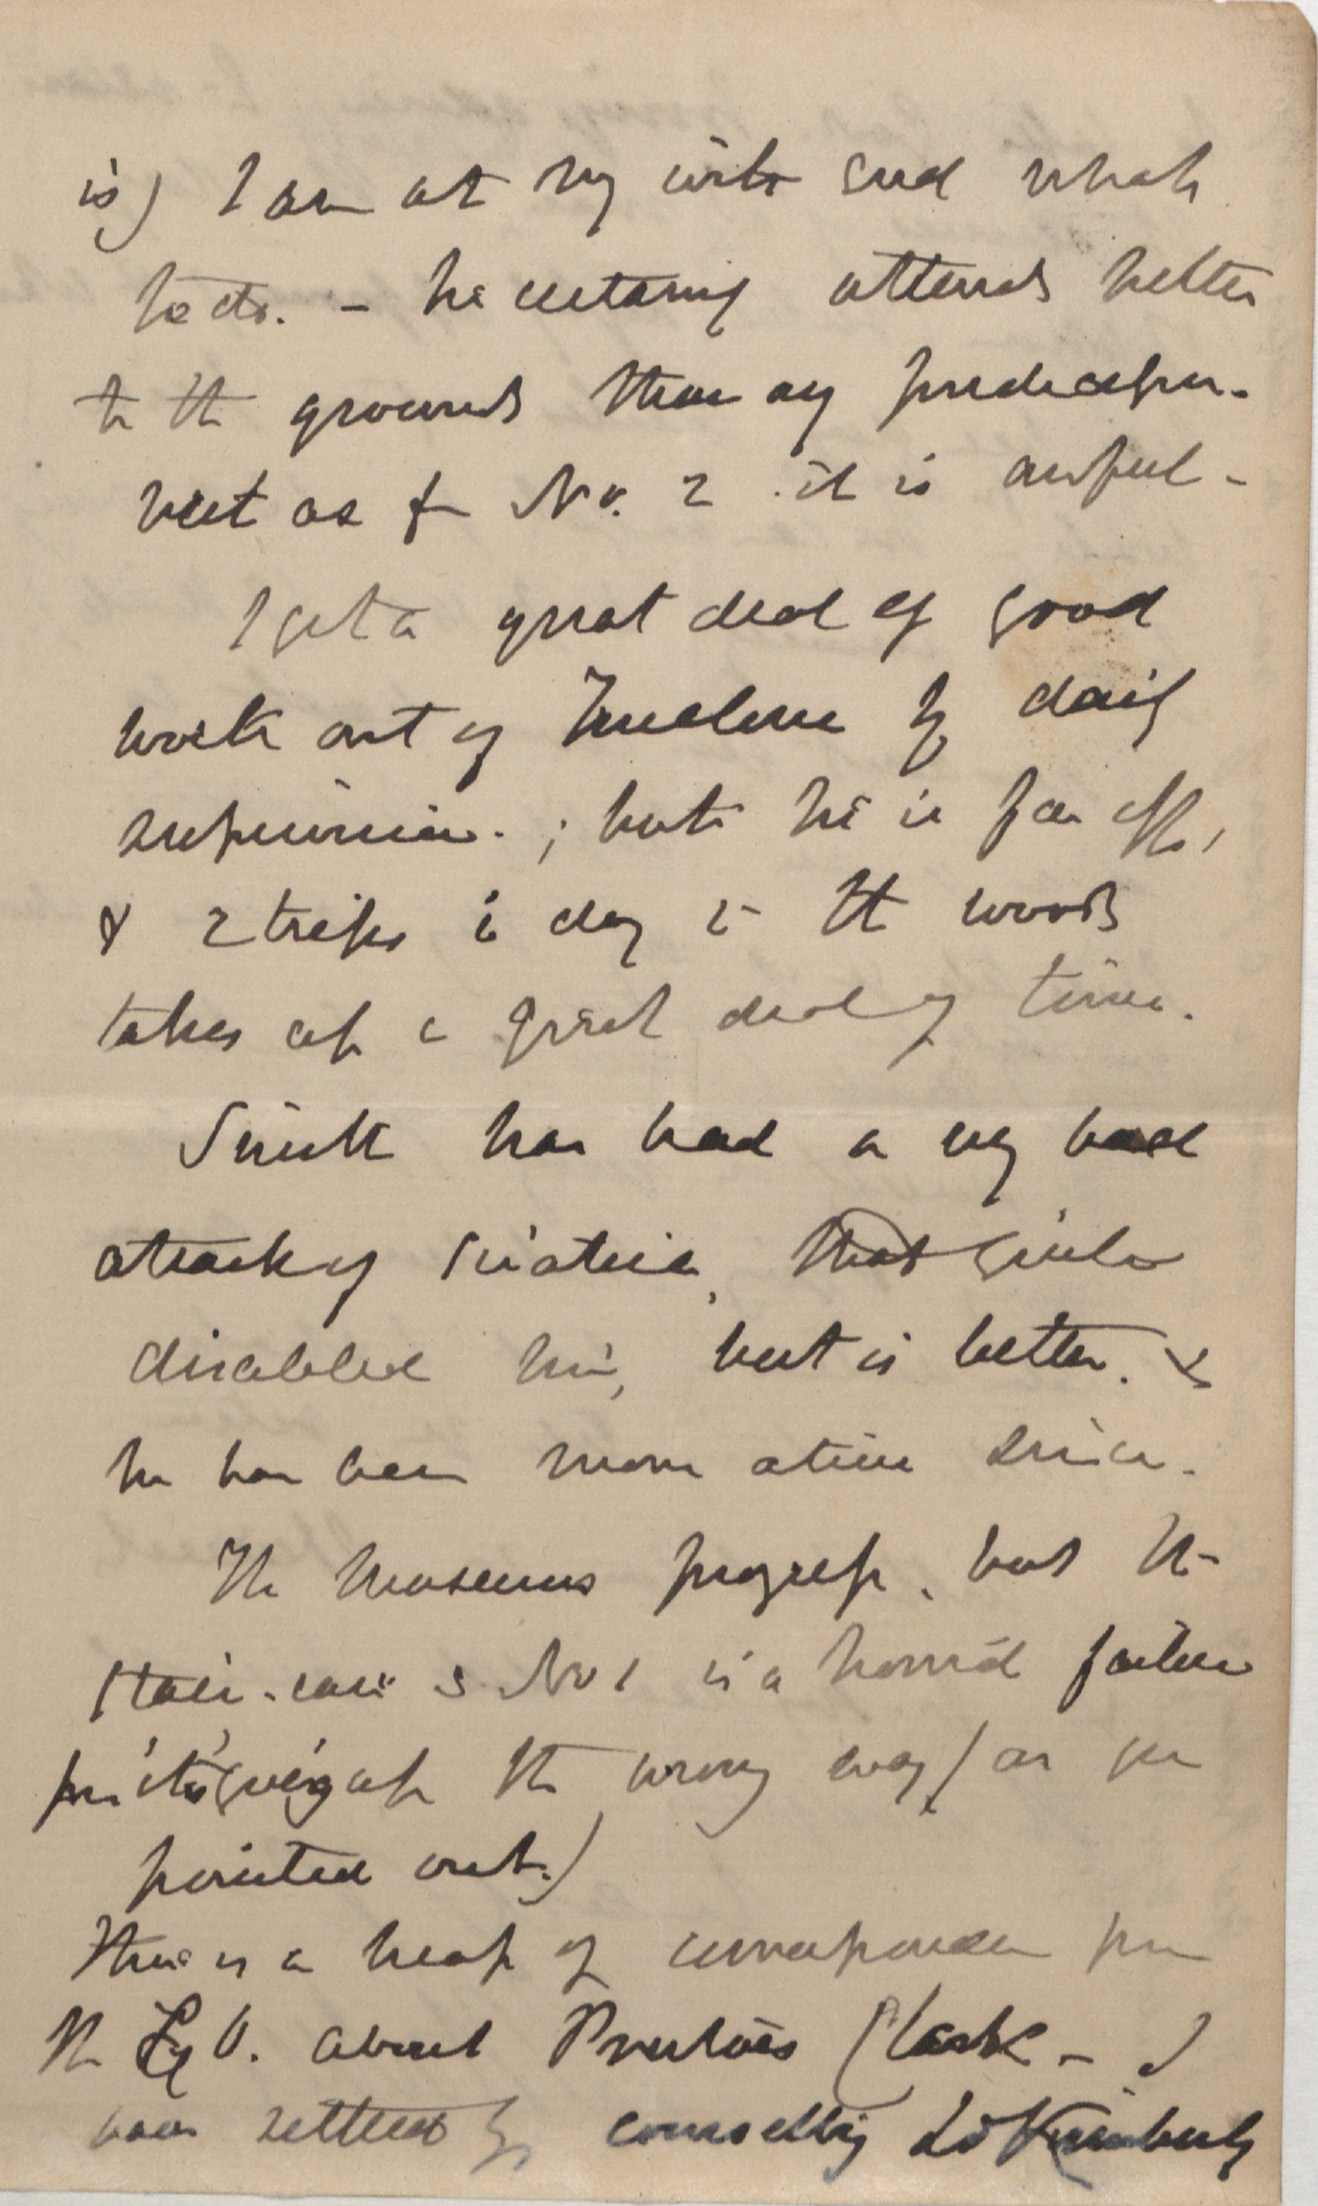 is) I am at my wits end what
to do. – he certainly attends better
to the grounds than any predecessor.
but as for No. 2 it is awful –
I get a great deal of good
work out of by daily
supervision. ; but he is far off,
& 2 trips a day to the woods
takes up a great deal of time.
Smith has had a very bad
attack of Sciatica, that quite
disabled him, but is better. &
he has been more active since.
The Museums progress, but the
Stair-case in No 1 is a horrid failure
from its going up the wrong way (as you
pointed out.)
There is a heap of correspondence from
the about Clark – I
was settled by counselling Ld Kimberly